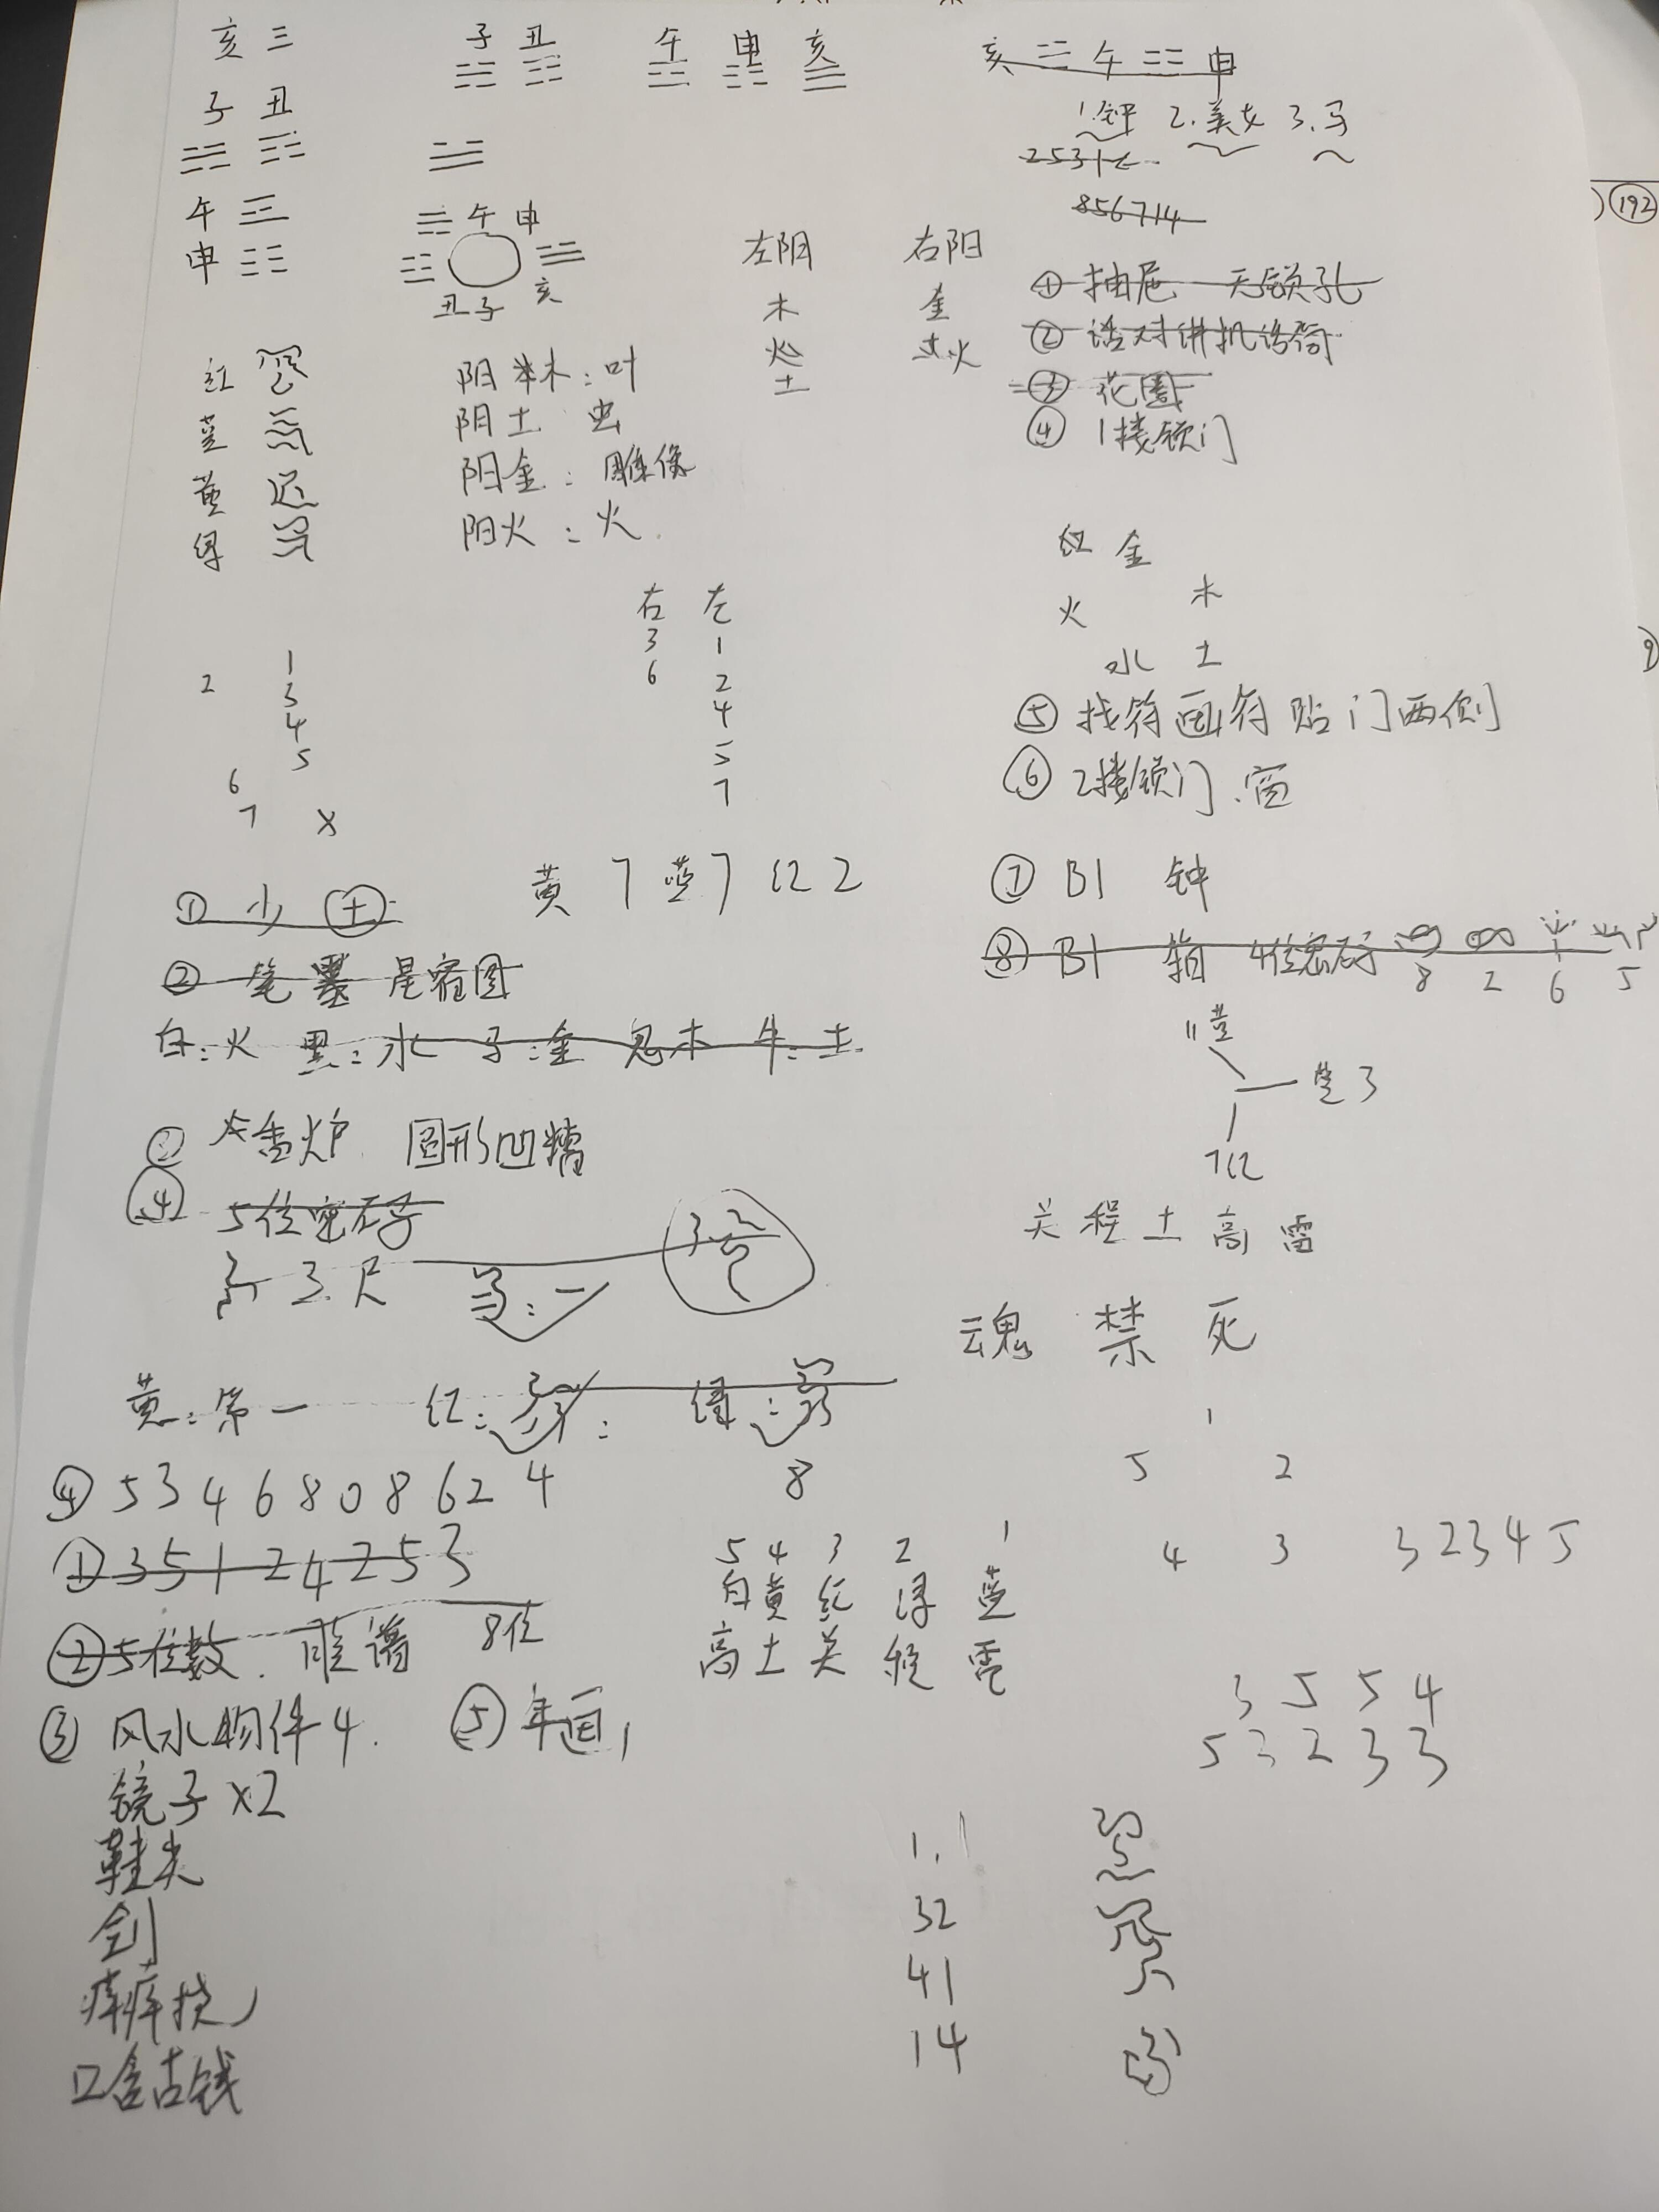 亥 三
子 丑
午 申 亥
亥 午 申
1.钟 2.美女 3.马
子 丑
25317
856714
192
午
申
午 申
亥
丑 子
左阴 右阳
木 金
火
土
① 抽屉 无锁孔
② 话对讲机话筒
③ 花圈
④ 1楼锁门
红
蓝
黄
绿
阳木:叶
阴土 虫
阳金:雕像
阳火:火
红 金
火 木
水 土
右 左
3 1
6 2
4
5
7
1
2 3
4
5
6
7 X
⑤ 找符画符贴门两侧
⑥ 2楼锁门.窗
⑦ B1 钟
⑧ B1 箱 4位密码
8 2 6 5
① 少 土
黄 7 蓝 7 红 2
② 笔墨 星宿图
白:火 黑:水 子:金 鬼木 牛:土
11 蓝
黄 3
7 红
② 香炉 圆形凹糟
④ 5位密码
3尺
关 程 土 高 雷
魂 禁 死
黄:第一 红: 绿:
④ 5346808624
8
1
5 2
4 3
32345
① 35124253
② 5位数.脸谱 8位
5 4 3 2 1
白 黄 红 绿 蓝
高 土 关 程 雷
③ 风水物件4. ⑤ 年画
3 5 5 4
5 3 2 3 3
镜子x2
鞋尖
剑
痒痒挠
口含古钱
1.1
32
41
14